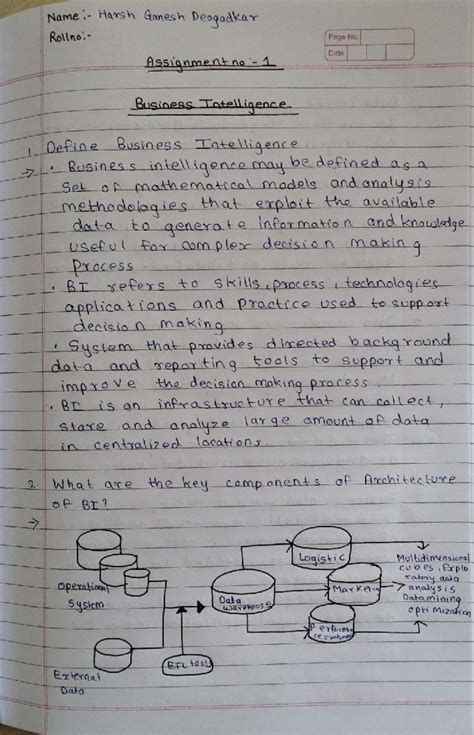 Name :- Harsh Ganesh Deogadkar
Rollno:-
Page No.
Date
Assignment no :- 1
Business Intelligence
1. Define Business Intelligence.
→ • Business intelligence may be defined as a
set of mathematical models and analysis
methodologies that exploit the available
data to generate information and knowledge
useful for complex decision making
process.
• BI refers to skills, process, technologies
applications and practice used to support
decision making
• System that provides directed background
data and reporting tools to support and
improve the decision making process.
• BI is an infrastructure that can collect,
store and analyze large amount of data
in centralized locations.
2. What are the key components of Architecture
of BI?
→
Operational
System
External
Data
ETL tools
Data
warehouse
Logistic
Marketin
Performa
ce evaluation
Multidimensional
cubes, Explo
ratory data
analysis
Datamining
optimization